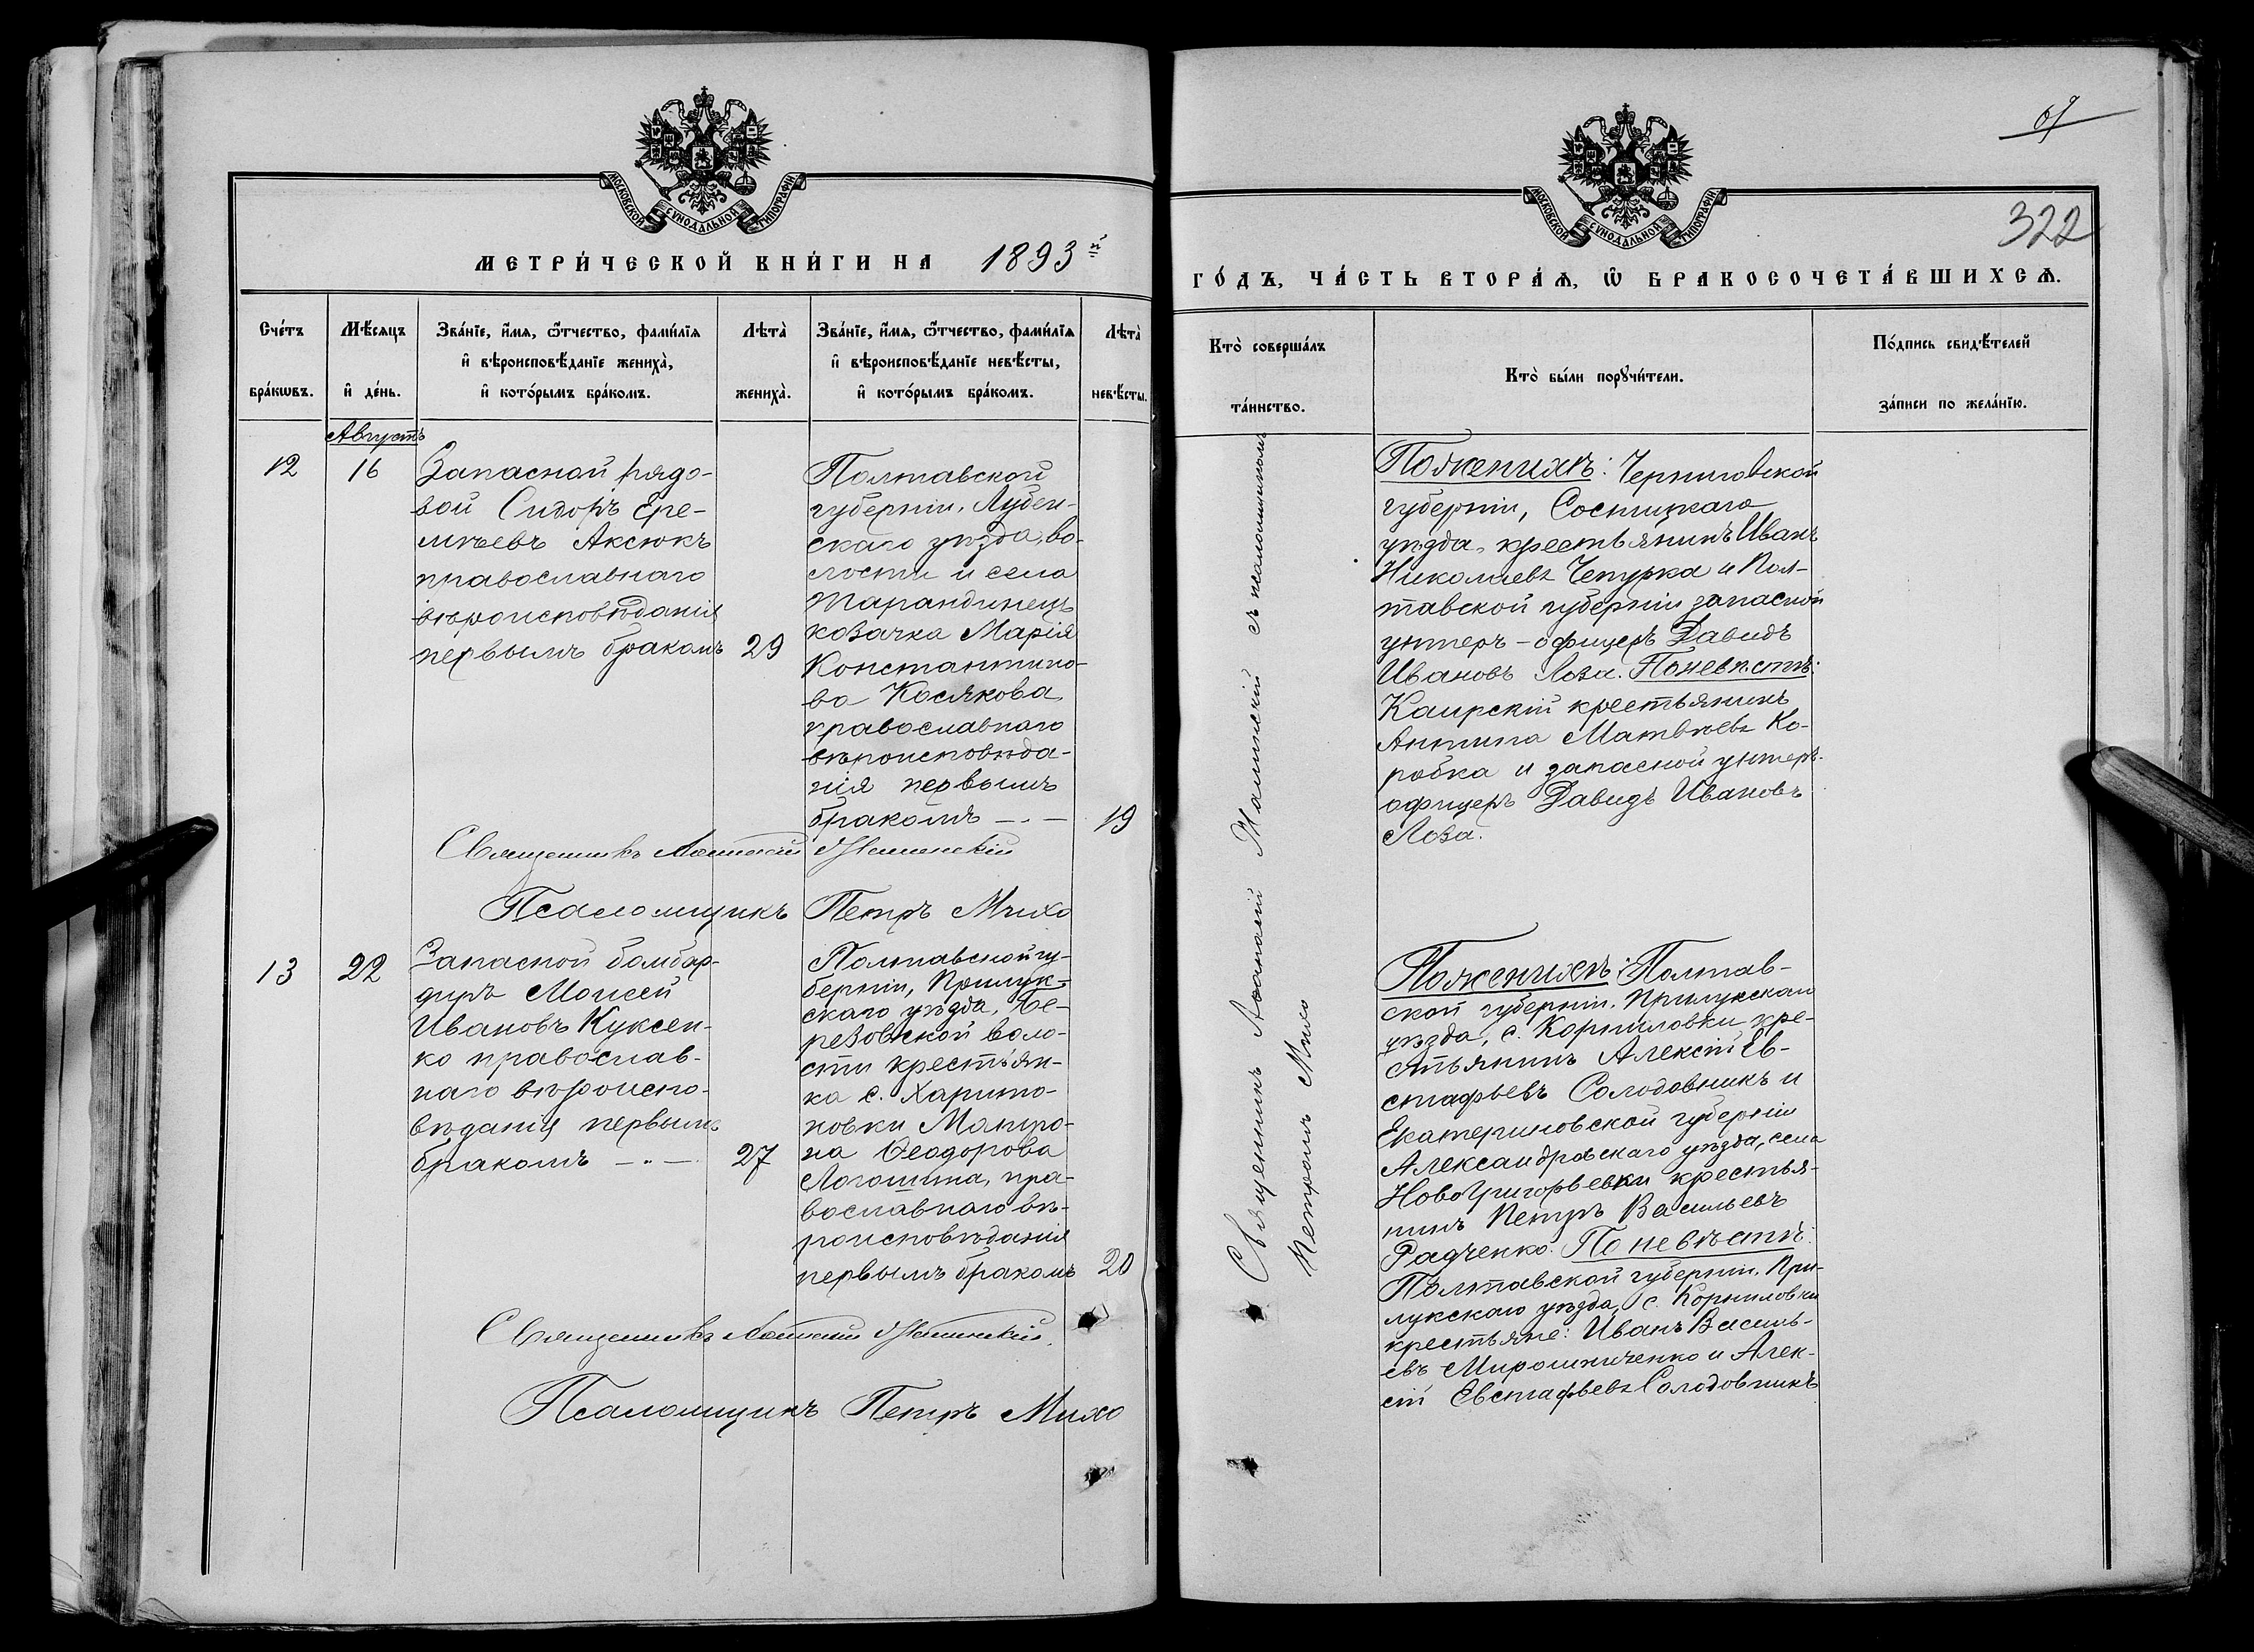 МОСКОВСКОЙ СУНОДАЛЬНОЙ ТИПОГРАФІИ
МЕТРИ́ЧЕСКОЙ КНИ́ГИ НА 1893й
Сче́тъ бра́кѡвъ.
Мѣ́сяцъ и҆ де́нь.
Зва́нїе, и҆́мя, ѻ҆́тчество, фами́лїя
и҆ вѣроисповѣ́данїе жениха̀,
и҆ кото́рымъ бра́комъ.
Лѣта̀ жениха̀.
Зва́нїе, и҆́мя, ѻ҆́тчество, фами́лїя
и҆ вѣроисповѣ́данїе невѣ́сты,
и҆ кото́рымъ бра́комъ.
Лѣта̀ невѣ́сты.
Августъ
12
16
Запасной рядо-
вой Сидоръ Ере-
мѣевъ Аксюкъ
православнаго
вѣроисповѣданія
первымъ бракомъ
29
Полтавской
губерніи, Лубен-
скаго уѣзда, во-
лости и села
Тарандинецъ
козачка Марія
Константино-
ва Косякова
православнаго
вѣроисповѣда-
нія первымъ
бракомъ —.—
19
Священникъ Аѳанасій
Псаломщикъ Петръ Михо
13
22
Запасной бомбар-
диръ Моисей
Ивановъ Куксен-
ко православ-
наго вѣроиспо-
вѣданія первымъ
бракомъ —.—
27
Полтавской гу-
берніи, Прилук-
скаго уѣзда, Бе-
резовской воло-
сти крестьян-
ка с. Харито-
новки Матро-
на Ѳеодорова
Логошина, пра-
вославнаго вѣ-
роисповѣданія
первымъ бракомъ
20
Священникъ Аѳанасій
Псаломщикъ Петръ Михо
322
МОСКОВСКОЙ СУНОДАЛЬНОЙ ТИПОГРАФІИ
ГО́ДЪ, ЧА́СТЬ ВТОРА́Ѧ, Ѽ БРАКОСОЧЕТА́ВШИХСѦ.
Кто̀ соверша́лъ
та́инство.
Кто̀ бы́ли порꙋчи́тели.
По́дпись свидѣ́телей
за́писи по жела́нїю.
Священникъ Аѳанасій съ псаломщикомъ
Петромъ Михо
По женихѣ: Черниговской
губерніи, Сосницкаго
уѣзда, крестьянинъ Иванъ
Николаевъ Чепурка и Пол-
тавской губерніи запасной
унтеръ-офицеръ Давидъ
Ивановъ Лоза. По невѣстѣ:
Каирскій крестьянинъ
Антипа Матвѣевъ Ко-
робка и запасной унтеръ-
офицеръ Давидъ Ивановъ
Лоза.
По женихѣ: Полтав-
ской губерніи, Прилукскаго
уѣзда, с. Корниловки кре-
стьянинъ Алексій Ев-
стафьевъ Солодовникъ и
Екатериновской губерніи
Александровскаго уѣзда, села
Новогригорьевки крестья-
нинъ Петръ Васильевъ
Радченко. По невѣстѣ:
Полтавской губерніи, При-
лукскаго уѣзда, с. Корниловки
крестьяне: Иванъ Василь-
евъ Мирошниченко и Алек-
сій Евстафьевъ Солодовникъ